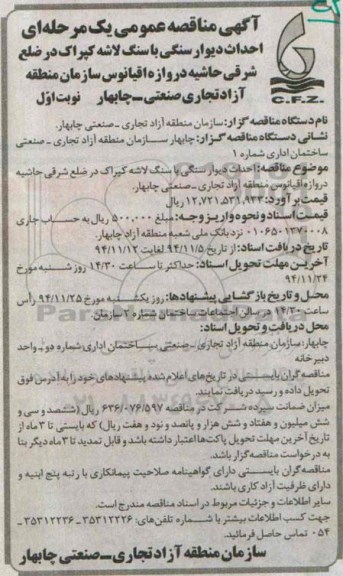 آگهی مناقصه عمومی یک مرحله‌ای
احداث دیوار سنگی با سنگ لاشه کپراک در ضلع
شرقی حاشیه دروازه اقیانوس سازمان منطقه
آزاد تجاری صنعتی ـ چابهار نوبت اول
C.F.Z.
نام دستگاه مناقصه گزار: سازمان منطقه آزاد تجاری ـ صنعتی چابهار.
نشانی دستگاه مناقصه گزار: چابهار سازمان منطقه آزاد تجاری ـ صنعتی
ساختمان اداری شماره ۱
موضوع مناقصه: احداث دیوار سنگی با سنگ لاشه کپراک در ضلع شرقی حاشیه
دروازه اقیانوس منطقه آزاد تجاری ـ صنعتی چابهار.
قیمت برآورد: ۱۲,۷۲۱,۵۳۱,۹۳۳ ریال
قیمت اسناد و نحوه واریز وجه: مبلغ ۵۰۰,۰۰۰ ریال به حساب جاری
۰۱۰۶۵۰۱۳۷۰۰۰۸ نزد بانک ملی شعبه منطقه آزاد چابهار.
تاریخ دریافت اسناد: از تاریخ ۹۴/۱۱/۵ لغایت ۹۴/۱۱/۱۲
آخرین مهلت تحویل اسناد: حداکثر تا ساعت ۱۴/۳۰ روز شنبه مورخ
۹۴/۱۱/۲۴
محل و تاریخ بازگشایی پیشنهادها: روز یکشنبه مورخ ۹۴/۱۱/۲۵ رأس
ساعت ۱۷/۳۰ در سالن اجتماعات ساختمان شماره ۲ سازمان
محل دریافت و تحویل اسناد:
چابهار: سازمان منطقه آزاد تجاری ـ صنعتی ساختمان اداری شماره دو ـ واحد
دبیرخانه
مناقصه گران بایستی در تاریخ‌های اعلام شده پیشنهادهای خود را به آدرس فوق
تحویل داده و رسید دریافت نمایند.
میزان ضمانت سپرده شرکت در مناقصه ۶۳۶/۰۷۶/۵۹۷ ریال (ششصد و سی و
شش میلیون و هفتاد و شش هزار و پانصد و نود و هفت ریال) که بایستی تا ۳ ماه از
تاریخ آخرین مهلت تحویل پاکت‌ها اعتبار داشته باشد و قابل تمدید تا ۳ ماه دیگر بنا
به درخواست مناقصه گزار باشد.
مناقصه گران بایستی دارای گواهینامه صلاحیت پیمانکاری با رتبه پنج ابنیه و
دارای ظرفیت آزاد کاری باشند.
سایر اطلاعات و جزئیات مربوط در اسناد مناقصه مندرج است.
جهت کسب اطلاعات بیشتر با شماره تلفن‌های: ۳۵۳۱۲۲۲۶ ـ ۳۵۳۱۲۲۳۶ ـ
۰۵۴ تماس حاصل فرمائید.
سازمان منطقه آزاد تجاری ـ صنعتی چابهار